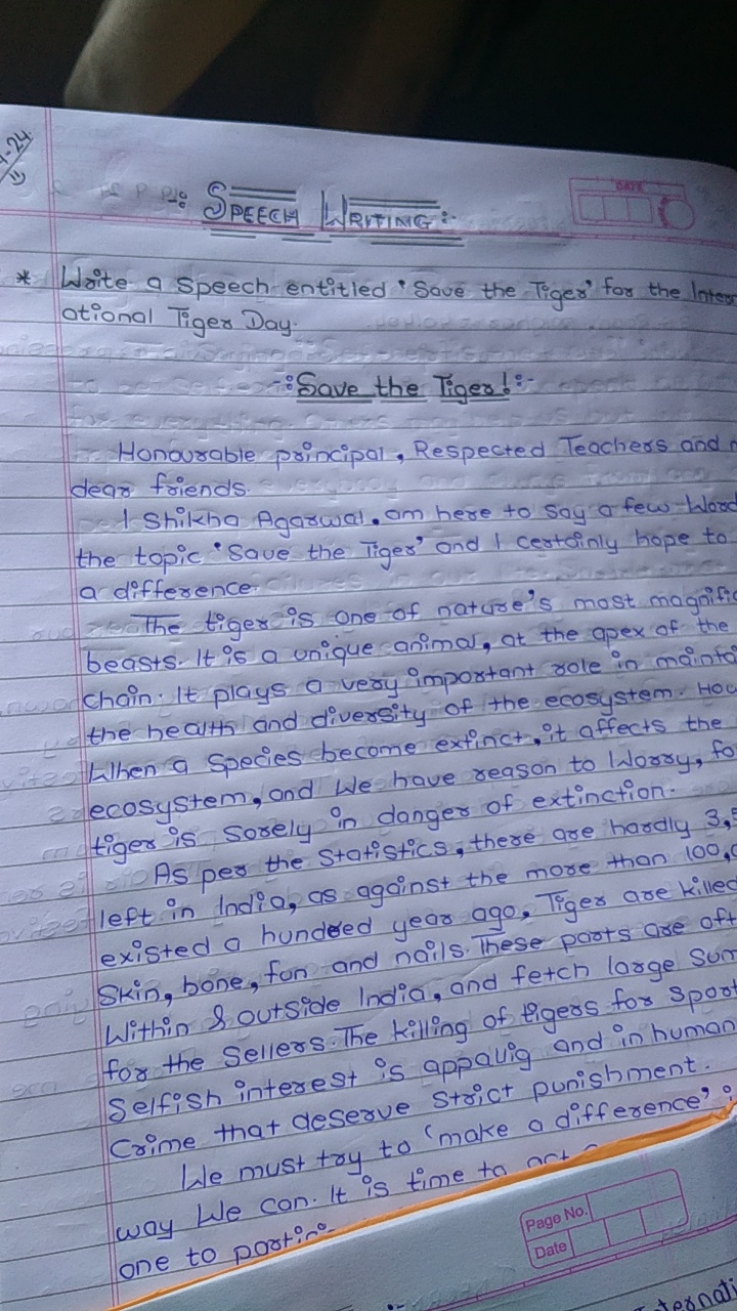 -24
SPEECH WRITING:-
DATE
* Write a speech entitled 'Save the Tiger' for the Intern
ational Tiger Day.
-:Save the Tiger!:-
Honourable principal, Respected Teachers and
dear friends.
I Shikha Agarwal, am here to say a few Word
the topic 'Save the Tiger' and I certainly hope to
a difference.
The tiger is one of nature's most magnific
beasts. It is a unique animal, at the apex of the
chain. It plays a very important role in mainta
the health and diversity of the ecosystem. How
When a species become extinct, it affects the
ecosystem, and We have reason to Worry, fo
tiger is sorely in danger of extinction.
As per the Statistics, there are hardly 3,5
left in India, as against the more than 100,0
existed a hundred year ago. Tiger are killed
Skin, bone, fun and nails. These parts are oft
Within & outside India, and fetch large Sum
for the Sellers. The killing of tigers for Sport
Selfish interest is appalig and in human
Crime that deserve Strict punishment.
We must try to 'make a difference'
way We can. It is time to act
one to
Page No.
Date